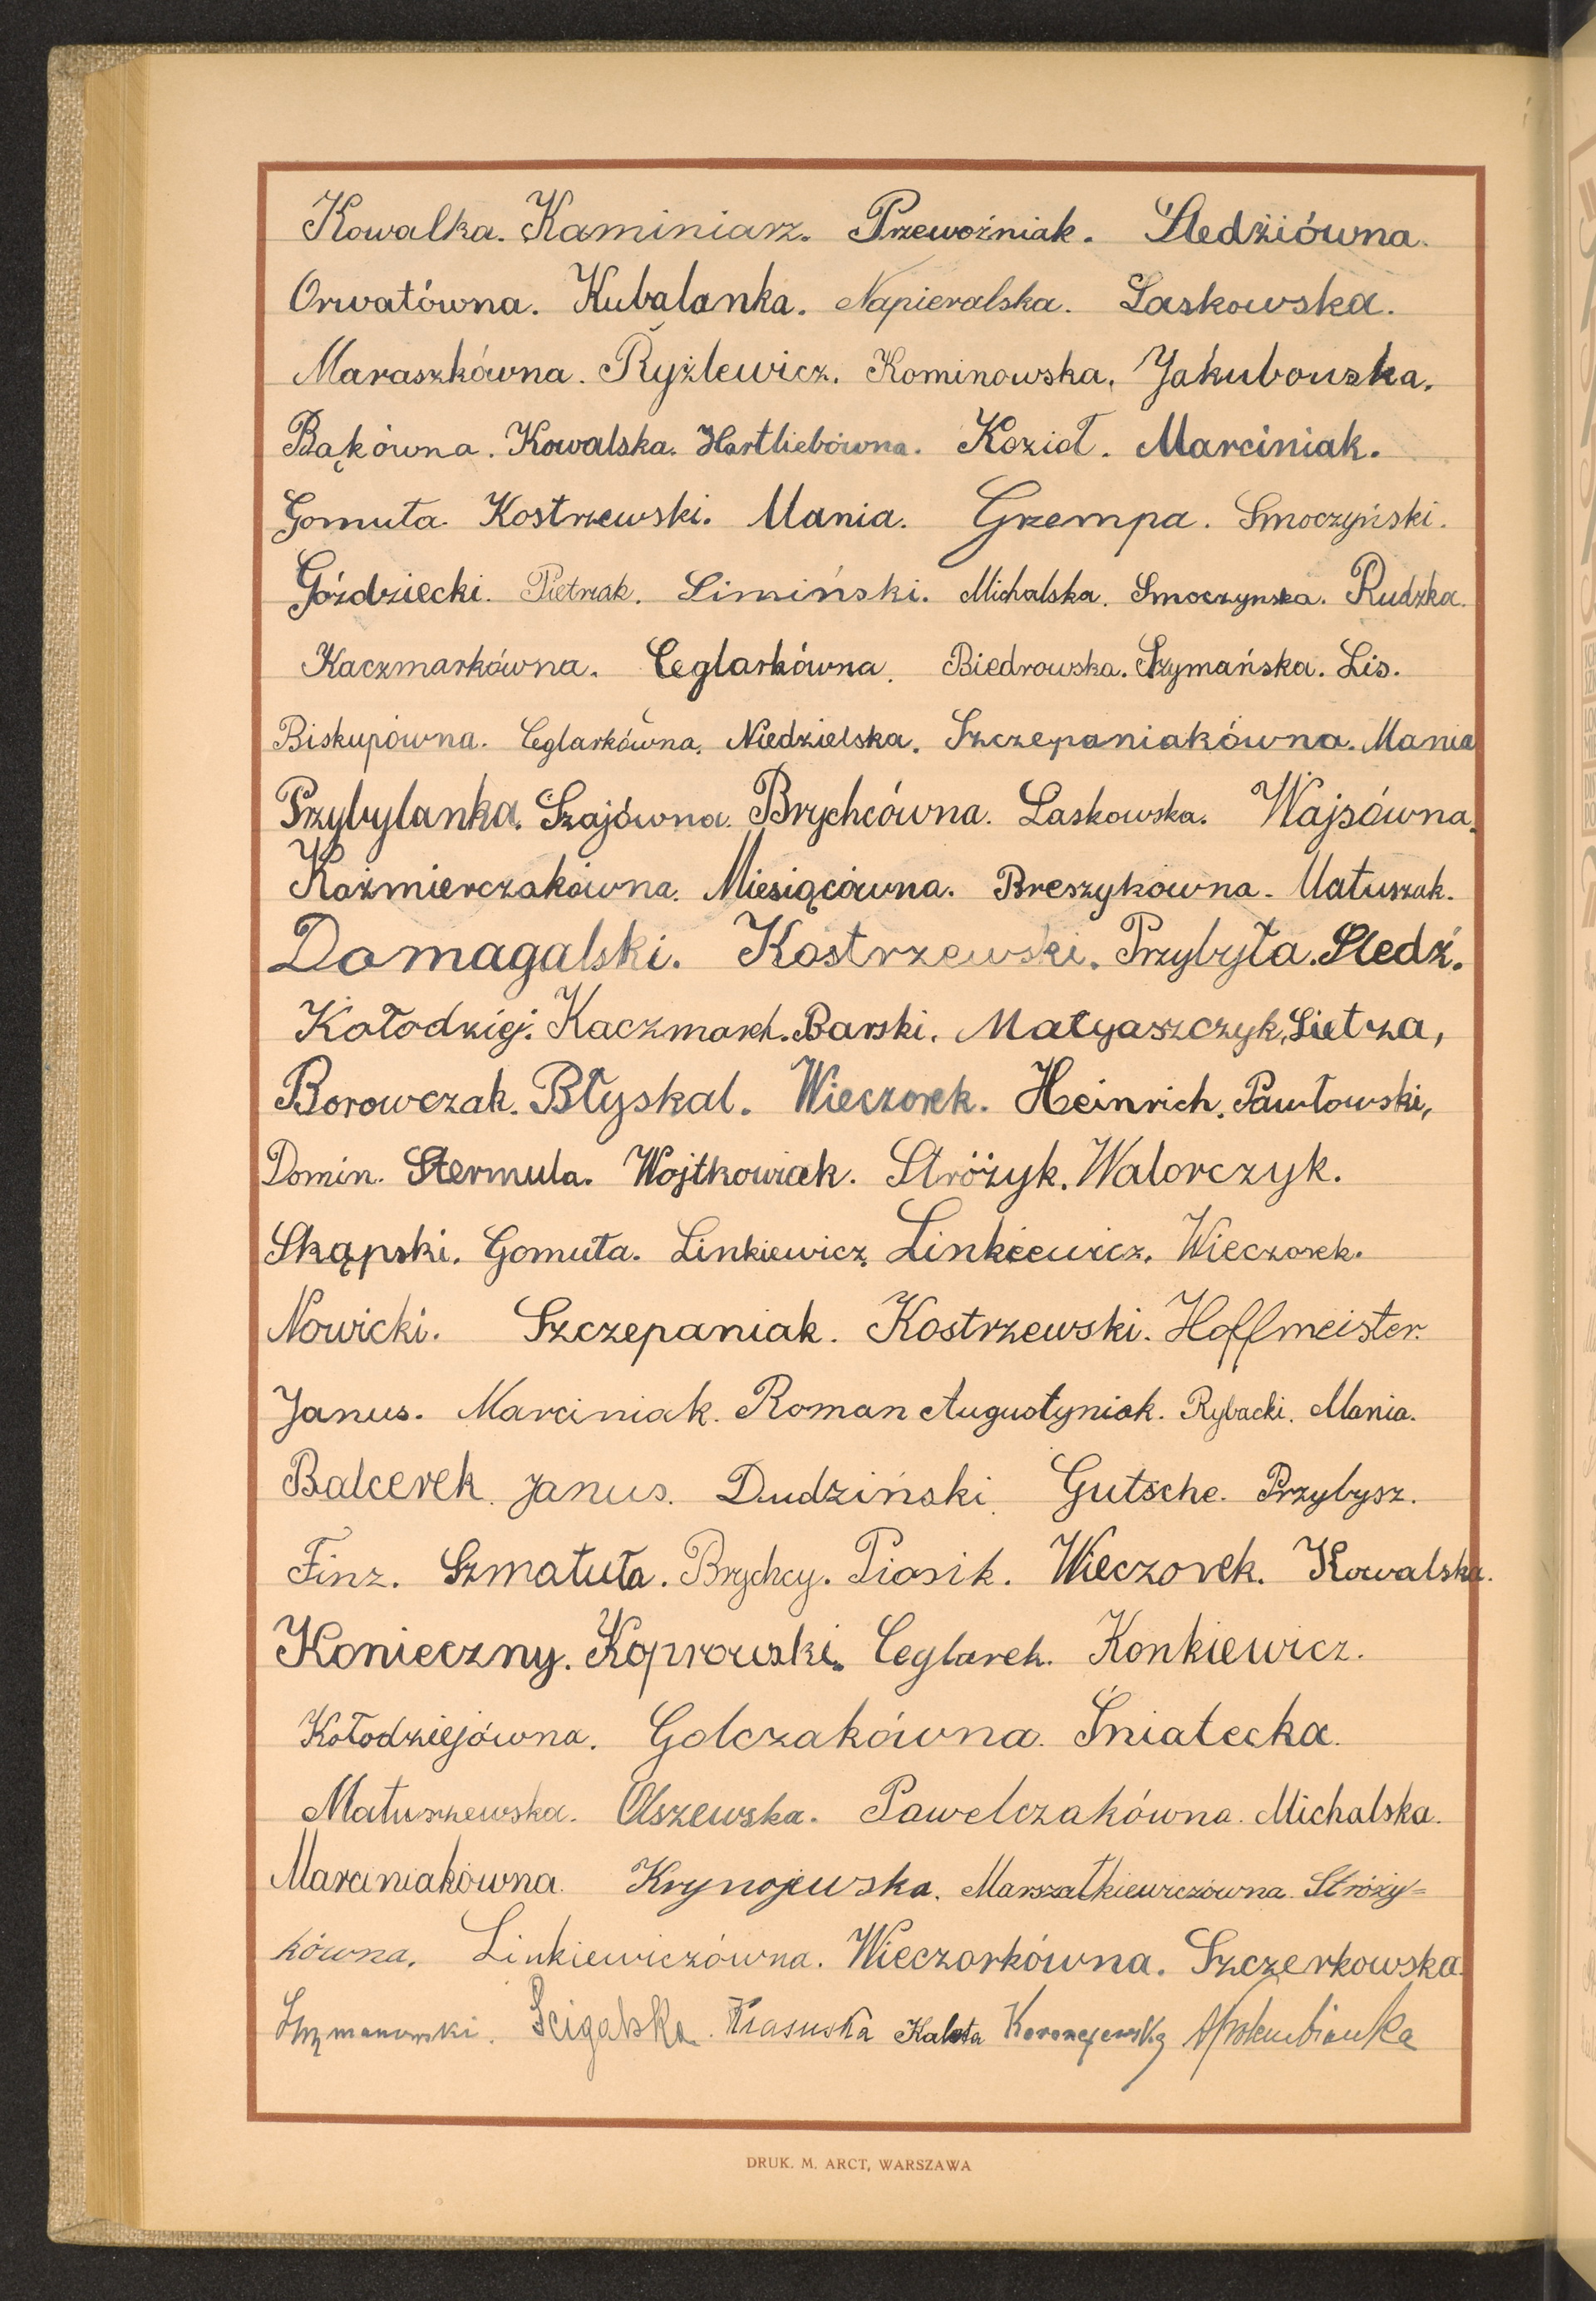 Kowalka. Kaminiarz. Przewoźniak. Śledziówna.
Orwatówna. Kubalanka. Napieralska. Laskowska.
Maraszkówna. Ryżlewicz. Kominowska. Jakubowska.
Bąkówna. Kowalska. Hartliebówna. Kozioł. Marciniak.
Gomuła. Kostrzewski. Mania. Grzempa. Smoczyński.
Góździecki. Pietrzak. Limiński. Michalska. Smoczynska. Rudzka.
Kaczmarkówna. Ceglarkówna. Biedrowska. Szymańska. Lis.
Biskupówna. Ceglarkówna. Niedzielska. Szczepaniakówna. Mania
Przybylanka. Szajówna. Brychcówna. Laskowska. Wajsówna.
Kaźmierczakówna. Miesiącówna. Breszykówna. Matuszak.
Domagalski. Kostrzewski. Przybyła. Śledź.
Kołodziej. Kaczmarek. Barski. Matyaszczyk, Lietza,
Borowczak. Błyskal. Wieczorek. Heinrich. Pawłowski,
Domin. Stermula. Wojtkowiak. Stróżyk. Walorczyk.
Skąpski. Gomuła. Linkiewicz. Linkiewicz. Wieczorek.
Nowicki. Szczepaniak. Kostrzewski. Hoffmeister.
Janus. Marciniak. Roman Augustyniak. Rybacki. Mania.
Balcerek. Janus. Dudziński. Gutsche. Przybysz.
Finz. Szmatuła. Brychcy. Piasik. Wieczorek. Kowalska.
Konieczny. Koprowski. Ceglarek. Konkiewicz.
Kołodziejówna. Golczakówna. Śniatecka.
Matuszewska. Olszewska. Pawelczakówna. Michalska.
Marciniakówna. Krynojewska. Marszałkiewiczówna. Stróży=
kówna. Linkiewiczówna. Wieczorkówna. Szczerkowska.
Szymanowski. Ścigalska. Krasuska Kaleta
DRUK. M. ARCT, WARSZAWA